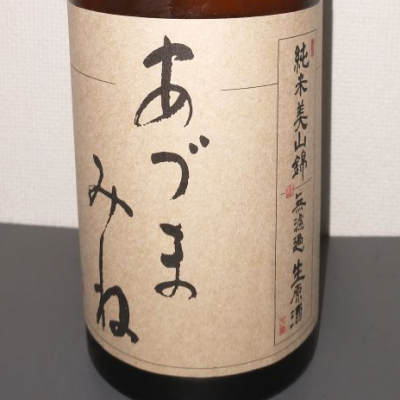 純米美山錦
無濾過 生原酒
あづま
みね